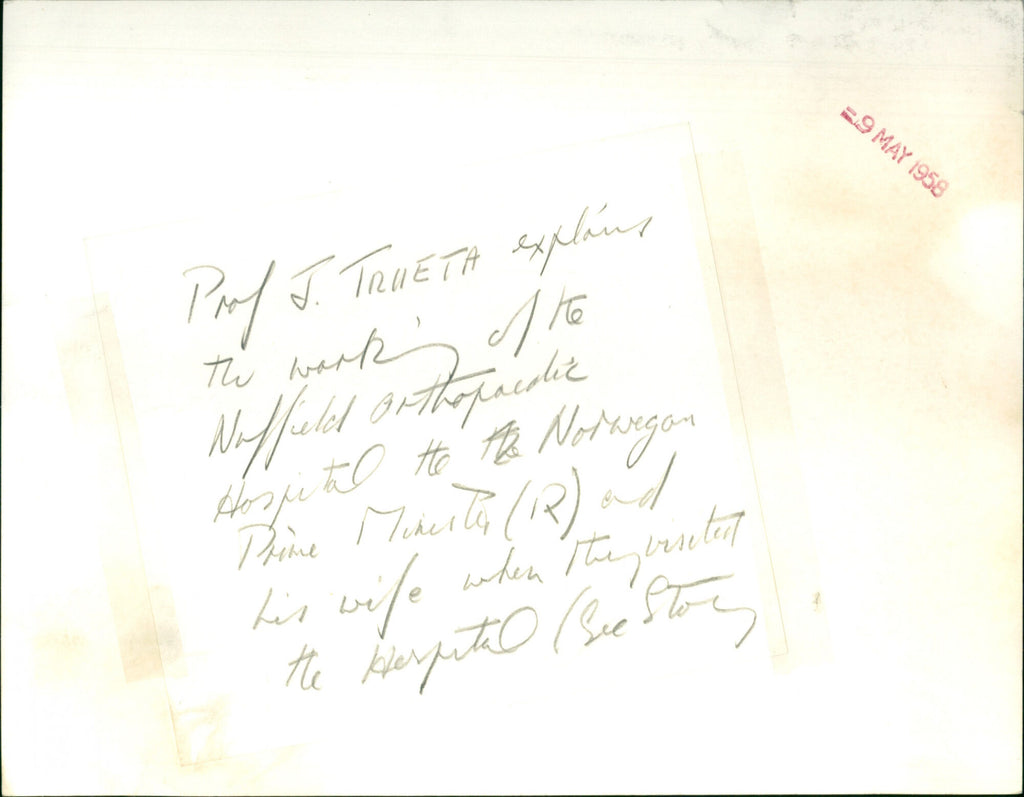 =.9 MAY 1958
Prof J. TRUETA explains
the working of the
Nuffield Orthopaedic
Hospital to the Norwegan
Prime Minister (R) and
his wife when they visited
the Hospital (See Story